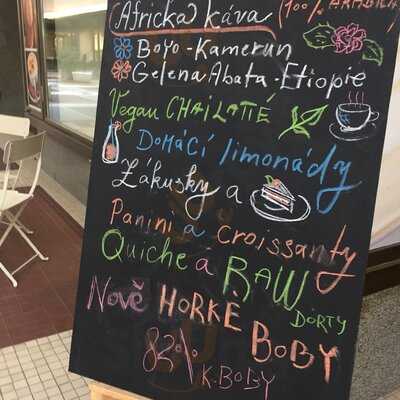 Africka káva (100% ARABICA)
Boyo-Kamerun
Gelena Abata-Etiopie
Vegan CHAILATTÉ
Domácí limonády
Zákusky a
Panini a croissanty
Quiche a RAW
DORTY
Nově HORKÉ BOBY
82% K.BOBY